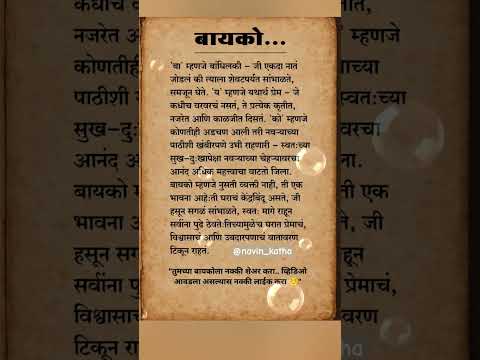 बायको...
'बा' म्हणजे बांधिलकी – जी एकदा नातं
जोडलं की त्याला शेवटपर्यंत सांभाळते,
समजून घेते. 'य' म्हणजे यथार्थ प्रेम – जे
कधीच वरवरचं नसतं, ते प्रत्येक कृतीत,
नजरेत आणि काळजीत दिसतं. 'को' म्हणजे
कोणतीही अडचण आली तरी नवऱ्याच्या
पाठीशी खंबीरपणे उभी राहणारी – स्वतःच्या
सुख-दुःखापेक्षा नवऱ्याच्या चेहऱ्यावरचा
आनंद अधिक महत्त्वाचा वाटतो जिला.
बायको म्हणजे नुसती व्यक्ती नाही, ती एक
भावना आहे:ती घराचं केंद्रबिंदू असते, जी
हसून सगळं सांभाळते, स्वतः मागे राहून
सर्वांना पुढे ठेवते:तिच्यामुळेच घरात प्रेमाचं,
विश्वासाचं आणि उबदारपणाचं वातावरण
टिकून राहतं.
@navin_katha
"तुमच्या बायकोला नक्की शेअर करा.. व्हिडिओ
आवडला असल्यास नक्की लाईक करा 😊"